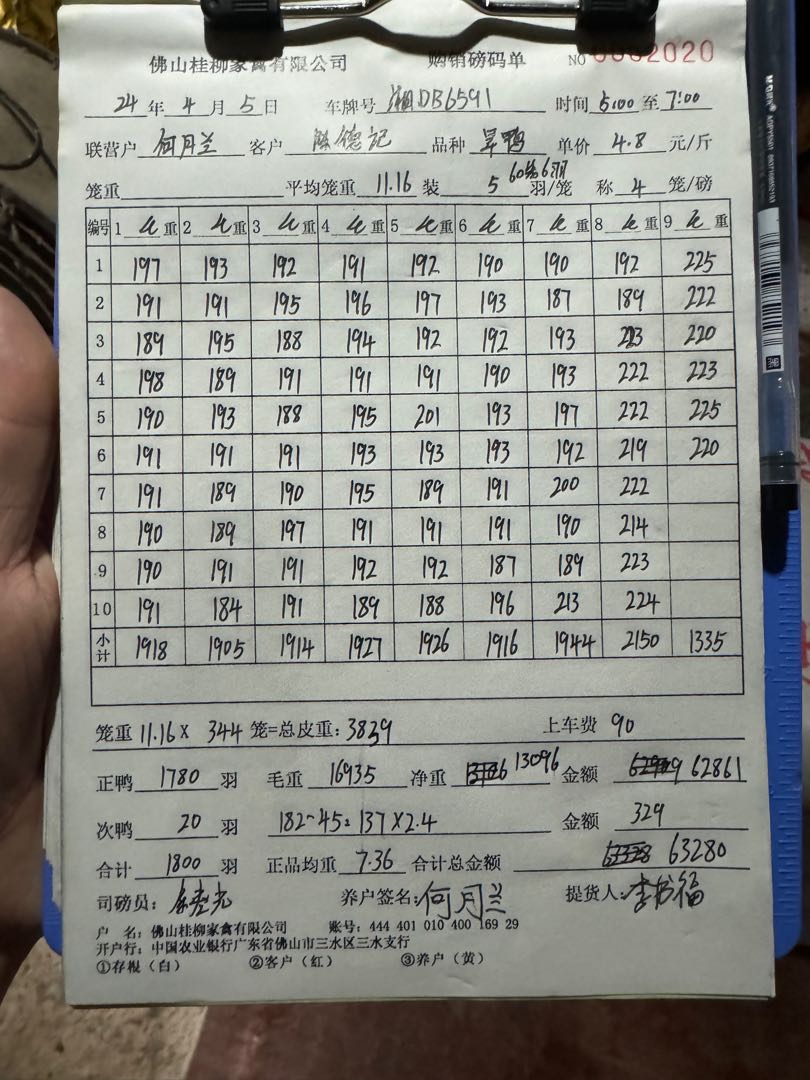 佛山桂柳家禽有限公司 购销磅码单 NO 0002020
24 年 4 月 5 日 车牌号 湘DB6591 时间 5:00 至 7:00
联营户 何月兰 客户 德记 品种 旱鸭 单价 4.8 元/斤
笼重 平均笼重 11.16 装 5 60笼6羽 羽/笼 称 4 笼/磅
编号 1 毛重 2 毛重 3 毛重 4 毛重 5 毛重 6 毛重 7 毛重 8 毛重 9 毛重
1 197 193 192 191 192 190 190 192 225
2 191 191 195 196 197 193 187 189 222
3 189 195 188 194 192 192 193 223 220
4 198 189 191 191 191 190 193 222 223
5 190 193 188 195 201 193 197 222 225
6 191 191 191 193 193 193 192 219 220
7 191 189 190 195 189 191 200 222
8 190 189 197 191 191 191 190 214
9 190 191 191 192 192 187 189 223
10 191 184 191 189 188 196 213 224
小计 1918 1905 1914 1927 1926 1916 1944 2150 1335
笼重 11.16 × 344 笼=总皮重: 3839 上车费 90
正鸭 1780 羽 毛重 16935 净重 13096 金额 62861
次鸭 20 羽 182-45=137×2.4 金额 329
合计 1800 羽 正品均重 7.36 合计总金额 63280
司磅员: 养户签名: 何月兰 提货人: 李福
户 名: 佛山桂柳家禽有限公司 账号: 444 401 010 400 169 29
开户行: 中国农业银行广东省佛山市三水区三水支行
①存根(白) ②客户(红) ③养户(黄)